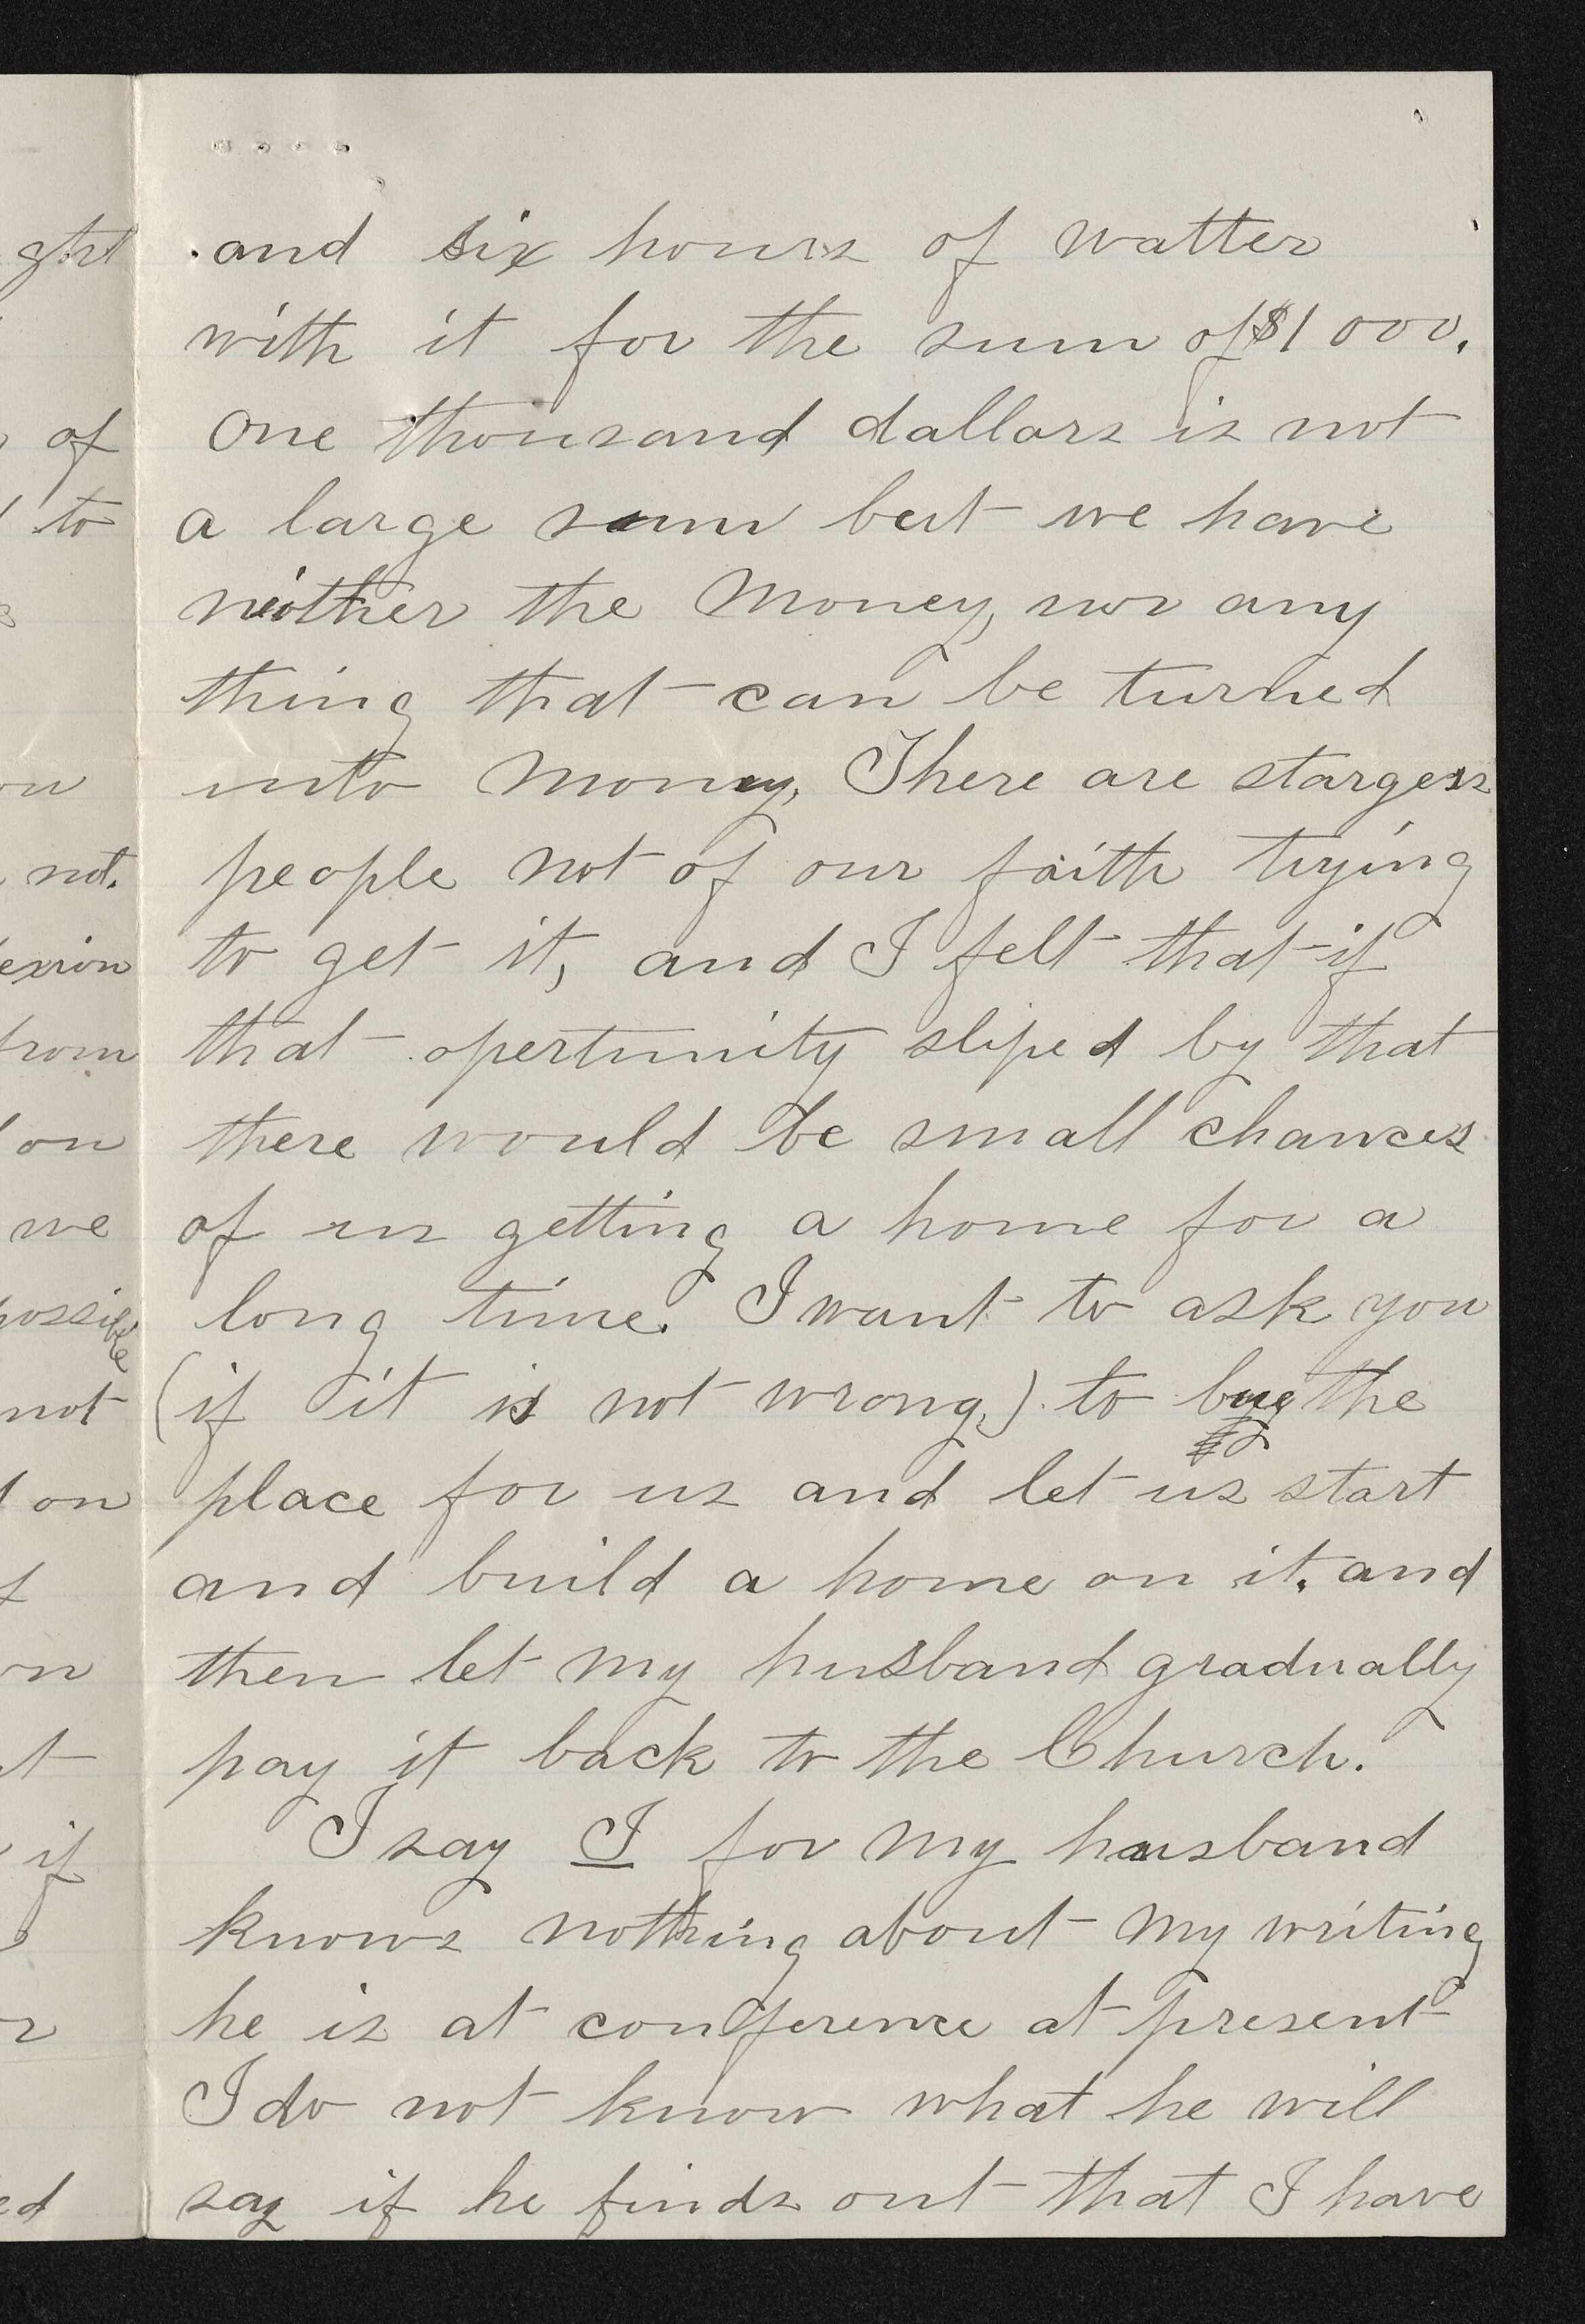 and six hours of watter
with it for the sum of $1000.
One thousand dallars is not
a large sum but we have
neither the Money, nor any
thing that can be turned
into Money, There are stargers
people not of our faith trying
to get it, and I felt that if
that opertunity sliped by that
there would be small chances
of us getting a home for a
long time. I want to ask you
(if it is not wrong,) to buy the
place for us and let us start
and build a home on it. and
then let my husband gradually
pay it back to the Church.
I say I for my husband
knows nothing about my writing
he is at conference at present
I do not know what he will
say if he finds out that I have
ght
of
to
not.
from
on
we
possible
not
on
if